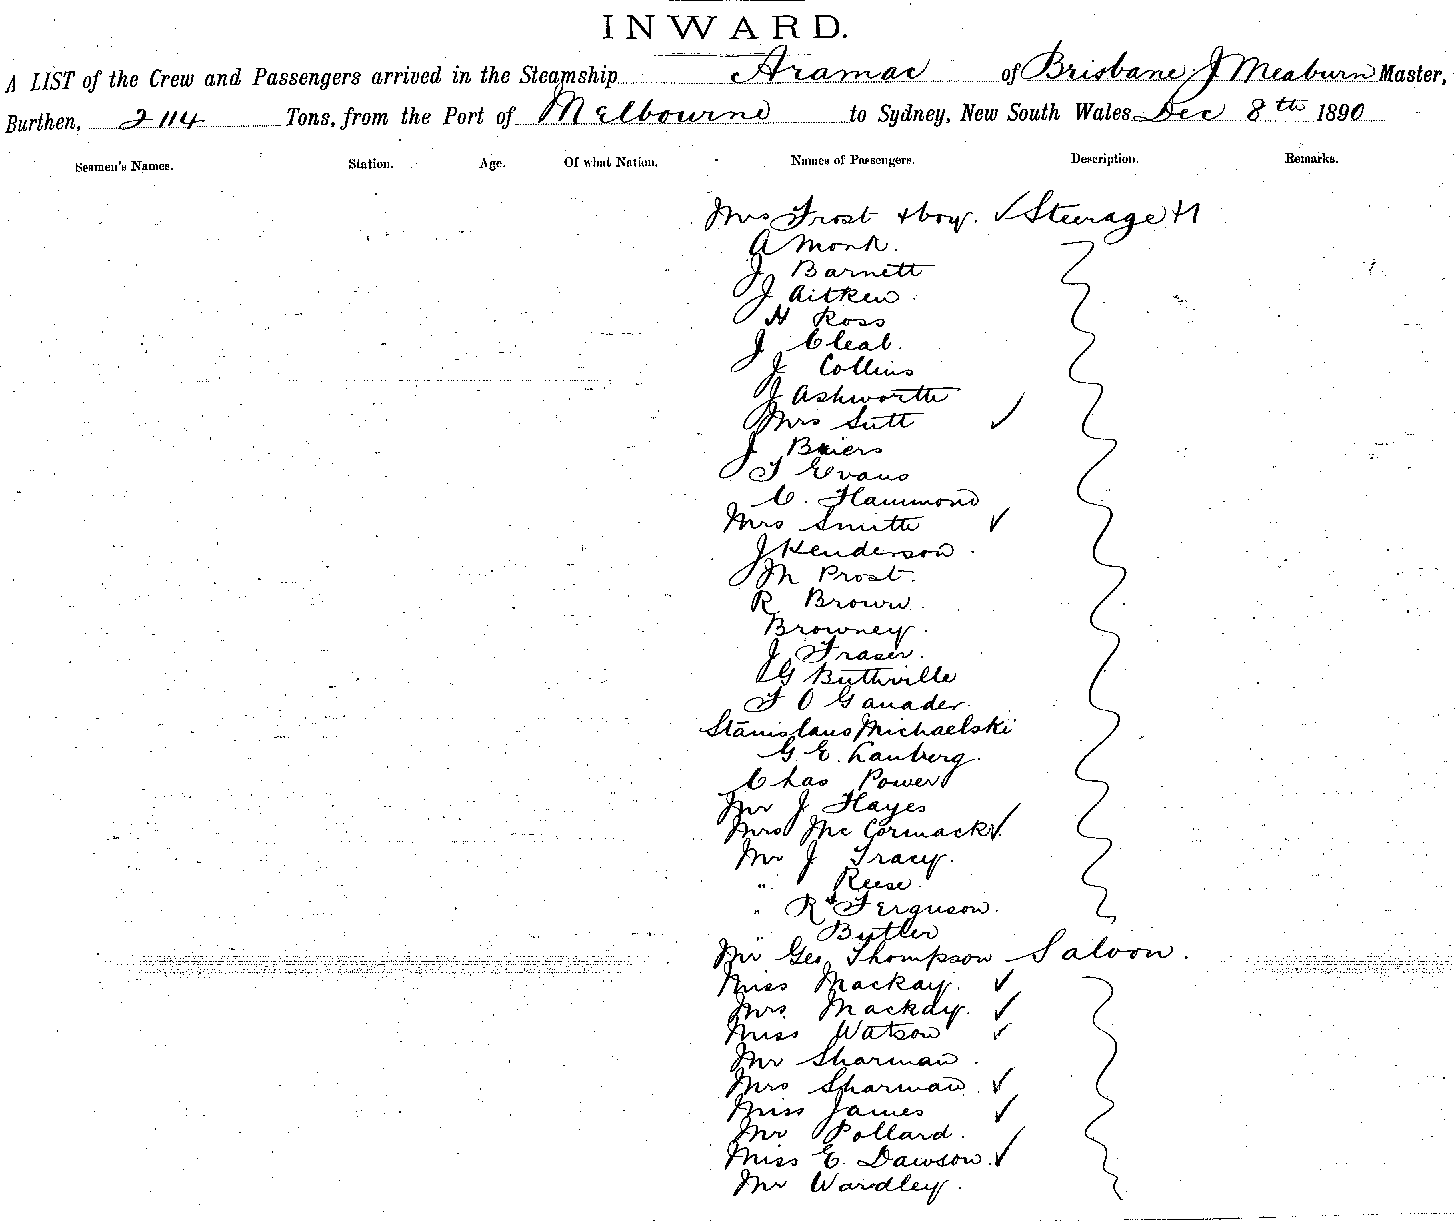 INWARD.
A LIST of the Crew and Passengers arrived in the Steamship Aramac of Brisbane J Meaburn Master,
Burthen, 2114 Tons, from the Port of Melbourne to Sydney, New South Wales Dec 8th 1890
Seamen's Names. Station. Age. Of what Nation. Names of Passengers. Description. Remarks.
Mrs Frost + boy. ✓ Steerage
A Monk.
J Barnett
J Aitken
H Ross
J Cleal.
J Collins
J Ashworth
Mrs Sutt ✓
J Briers
T Evans
C. Hammond
Mrs Smith ✓
J Henderson
M Prost.
R Brown
Browney.
J Fraser.
G Buthville
F O Ganader.
Stanislaus Michaelski
G E. Lanberg.
Chas Power
Mr J Hayes
Mrs Mc Cormack ✓
Mr J Tracy.
" Reese.
" R Ferguson.
" Butler
Mr Geo Thompson Saloon.
Miss Mackay. ✓
Mrs. Mackay. ✓
Miss Watson ✓
Mr Sharman.
Mrs Sharman ✓
Miss James ✓
Mr Pollard.
Miss E. Dawson. ✓
Mr Wardley.